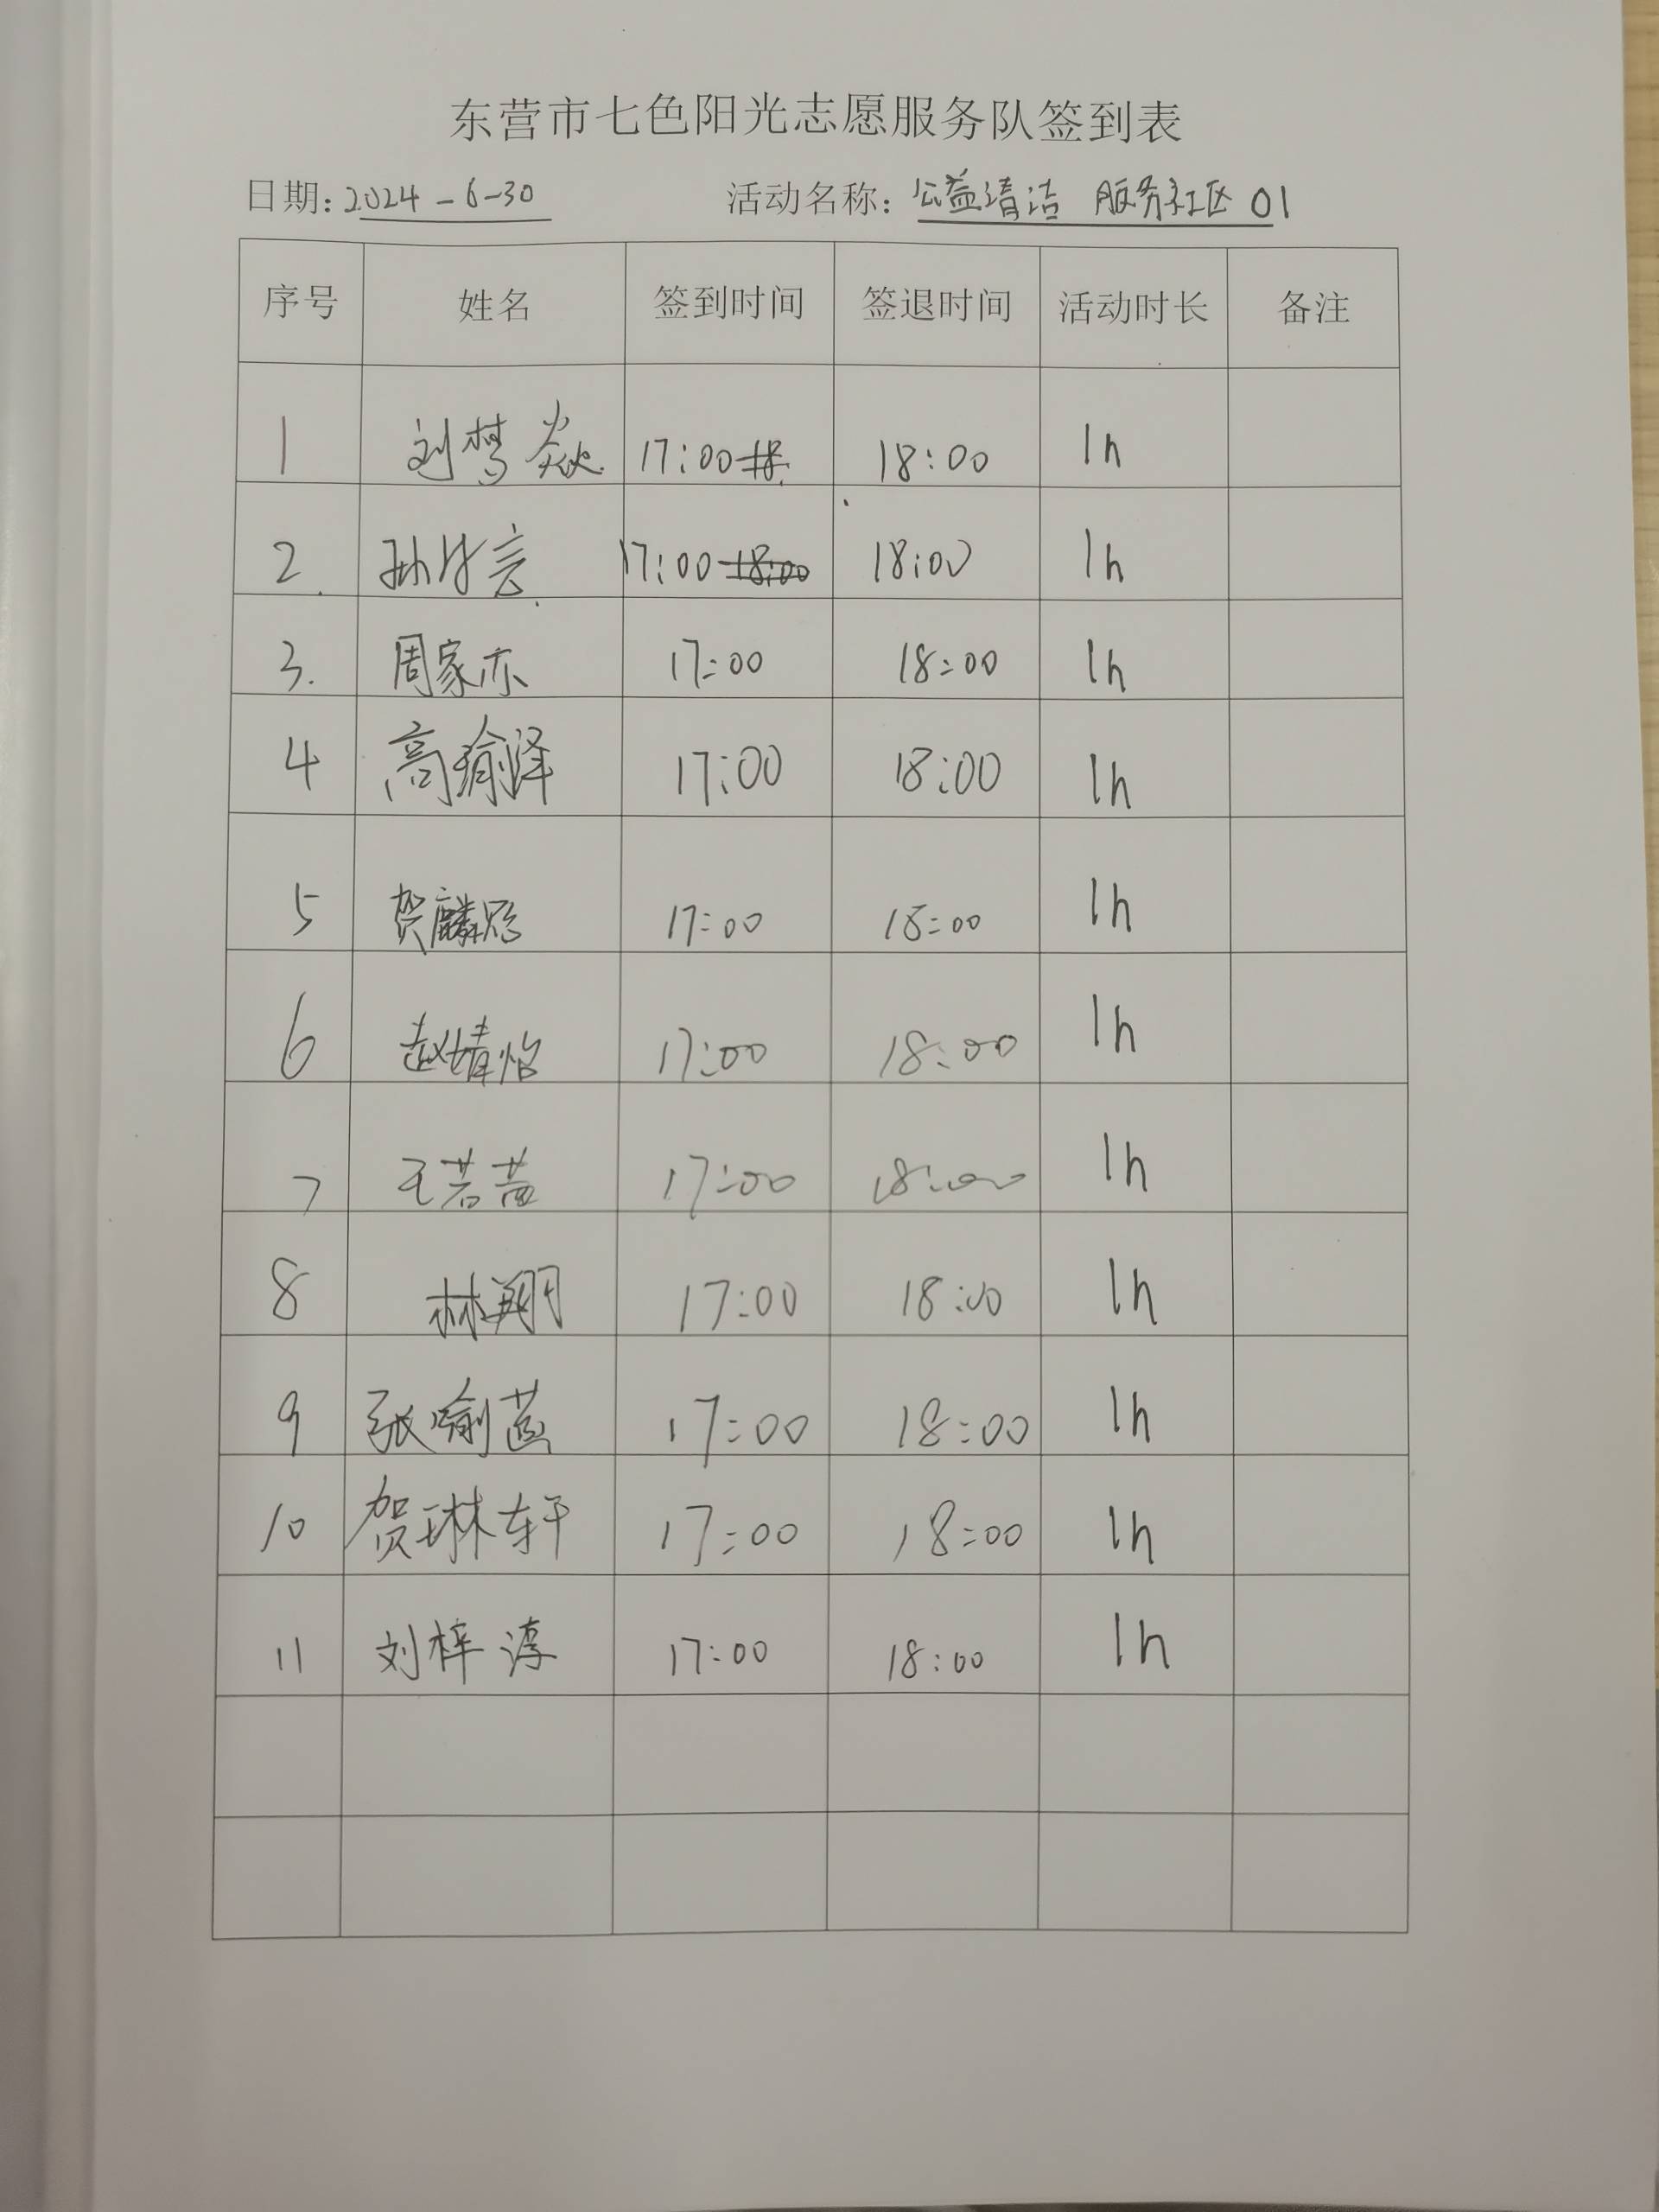 东营市七色阳光志愿服务队签到表
日期: 2024-6-30 活动名称: 公益清洁 服务社区 01
序号 姓名 签到时间 签退时间 活动时长 备注
1 刘梦焱 17:00 18:00 1h
2. 孙 言 17:00 18:00 18:00 1h
3. 周家亦 17:00 18:00 1h
4 高瑜泽 17:00 18:00 1h
5 贺麟 17:00 18:00 1h
6 赵婧怡 17:00 18:00 1h
7 王若 17:00 18:00 1h
8 林翔 17:00 18:00 1h
9 张喻 17:00 18:00 1h
10 贺琳轩 17:00 18:00 1h
11 刘梓淳 17:00 18:00 1h